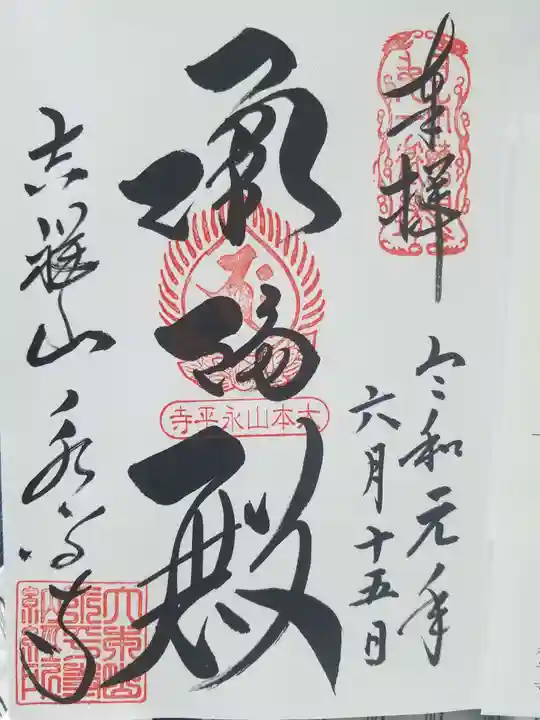 奉拝
令和元年
六月十五日
承陽殿
大本山永平寺
吉祥山 永平寺
大本山永平寺納経所